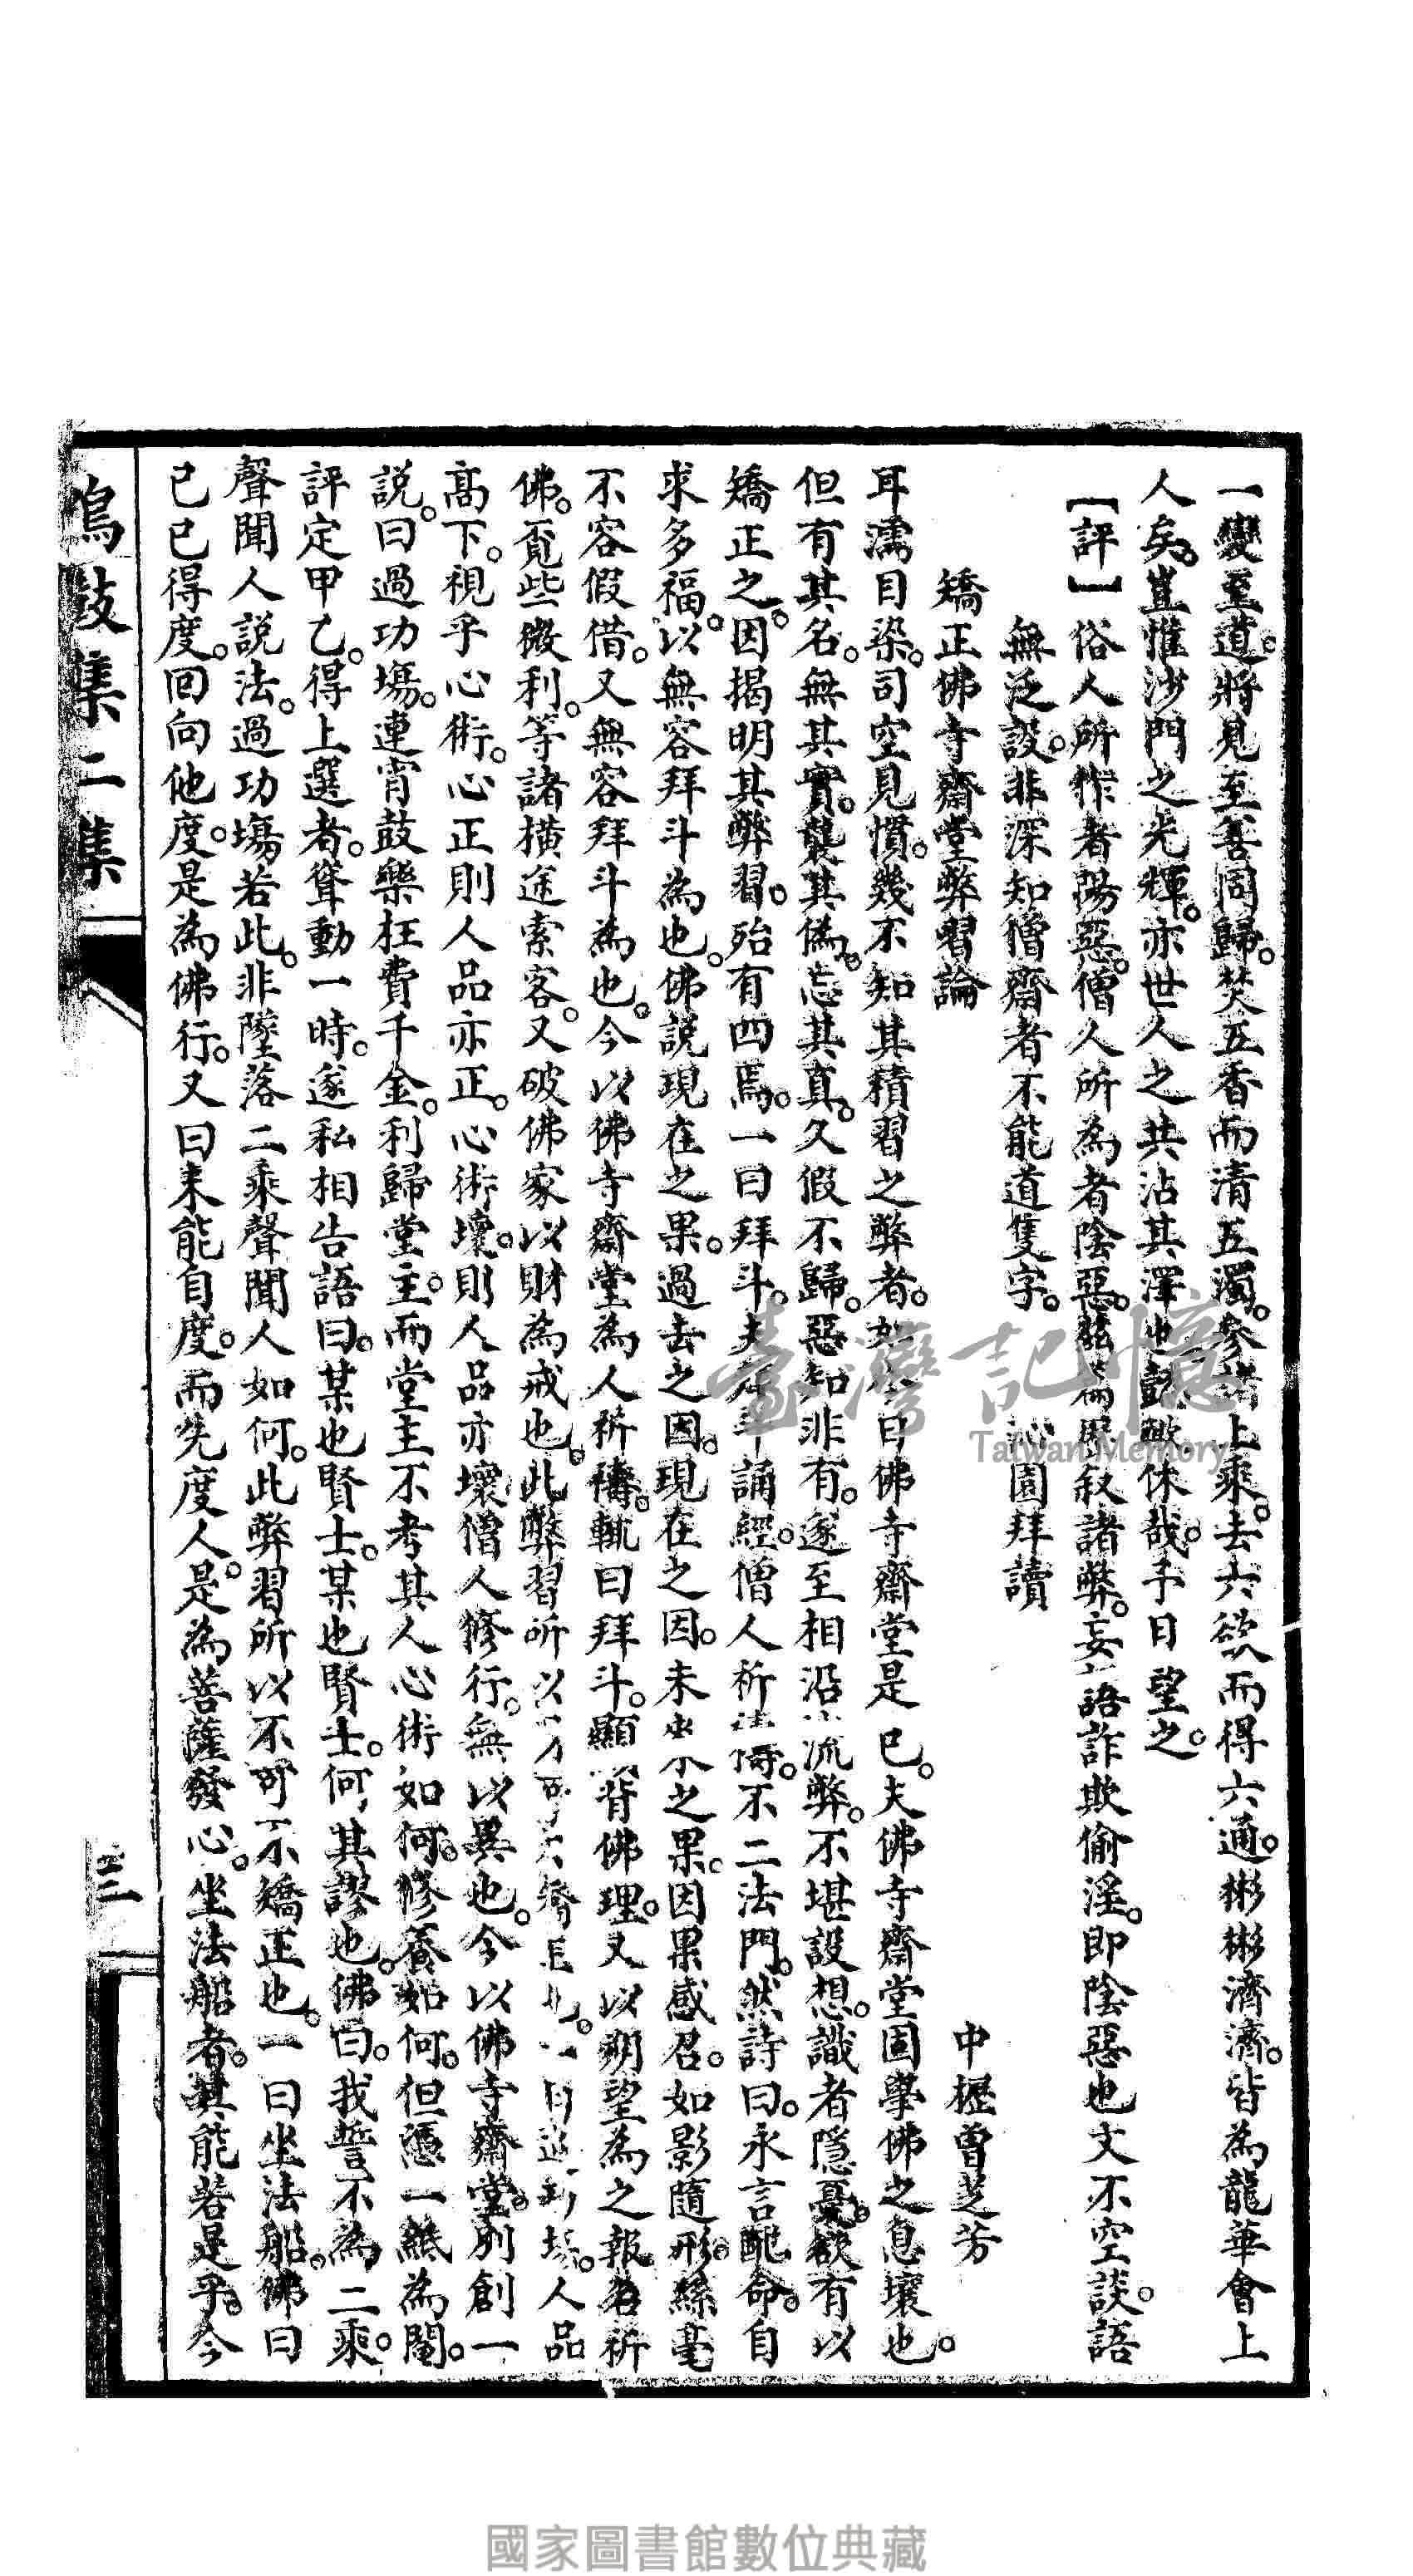 一變至道。將見至善同歸。焚五香而清五濁。參諸上乘。去六欲而得六通。彬彬濟濟。皆為龍華會上
人矣。豈惟沙門之光輝。亦世人之共沾其澤也。懿歟休哉。予日望之。
【評】俗人所作者陽惡。僧人所為者陰惡。茲篇歷叙諸弊。妄語詐欺偷淫。即陰惡也文不空談。語
無泛設。非深知僧齋者不能道隻字。 沁園拜讀
矯正佛寺齋堂弊習論 中壢曾芝芳
耳濡目染。司空見慣。幾不知其積習之弊者。如今日佛寺齋堂是已。夫佛寺齋堂固學佛之息壤也。
但有其名。無其實。襲其偽。忘其真。久假不歸。惡知非有。遂至相沿流弊。不堪設想。識者隱憂。欲有以
矯正之。因揭明其弊習。殆有四焉。一曰拜斗。夫拜斗誦經。僧人祈禱。不二法門。然詩曰。永言配命。自
求多福。以無容拜斗為也。佛說現在之果。過去之因。現在之因。未來之果。因果感召。如影隨形。絲毫
不容假借。又無容拜斗為也。今以佛寺齋堂為人祈禱。輒曰拜斗。顯背佛理。又以朔望為之報名祈
佛。覓些微利。等諸橫途索客。又破佛家以財為戒也。此弊習所以不可不矯正也。一曰過功場。人品
高下。視乎心術。心正則人品亦正。心術壞。則人品亦壞僧人修行。無以異也。今以佛寺齋堂。別創一
說。曰過功場。連宵鼓樂枉費千金。利歸堂主。而堂主不考其人心術如何。修養如何。但憑一紙為鬮。
評定甲乙。得上選者。聳動一時。遂私相告語曰。某也賢士。某也賢士。何其謬也。佛曰。我誓不為二乘。
聲聞人說法。過功場若此。非墜落二乘聲聞人如何。此弊習所以不可不矯正也。一曰坐法船。佛曰
已已得度。回向他度。是為佛行。又曰未能自度。而先度人。是為菩薩發心。坐法船者。其能若是乎。今
鳴鼓集二集
三
臺灣記憶
Taiwan Memory
國家圖書館數位典藏